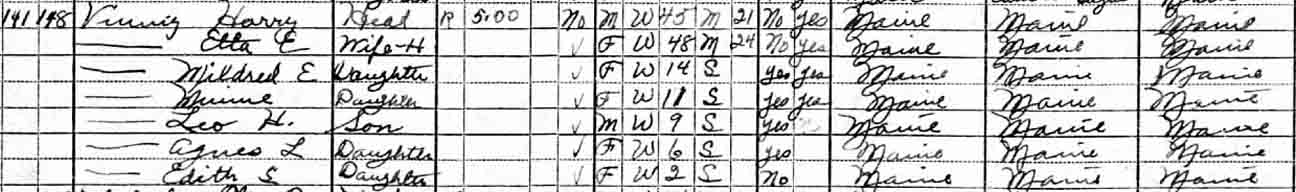 141 148 Vinnig Harry Head R 5.00 No M W 45 M 21 No Yes Maine Maine Maine
— Etta E Wife-H ✓ F W 48 M 24 No Yes Maine Maine Maine
— Mildred E Daughter ✓ F W 14 S Yes Yes Maine Maine Maine
— Minnie Daughter ✓ F W 11 S Yes Yes Maine Maine Maine
— Leo H. Son ✓ M W 9 S Yes Maine Maine Maine
— Agnes L Daughter ✓ F W 6 S Yes Maine Maine Maine
— Edith S Daughter ✓ F W 2 S No Maine Maine Maine